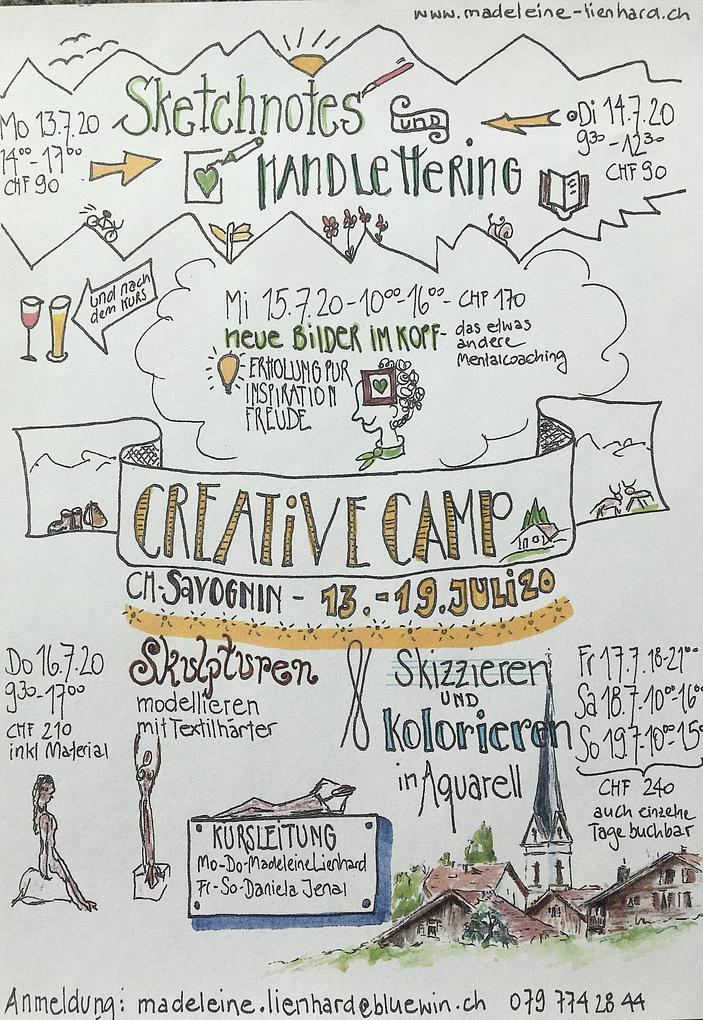 www.madeleine-lienhard.ch
Sketchnotes
und
HANDLETTERING
Mo 13.7.20
14⁰⁰-17⁰⁰
CHF 90
Di 14.7.20
9³⁰-12³⁰
CHF 90
und nach
dem KURS
Mi 15.7.20-10⁰⁰-16⁰⁰- CHF 170
neue BILDER IM KOPF-
das etwas
andere
Mentalcoaching
ERHOLUNG PUR
INSPIRATION
FREUDE
CREATIVE CAMP
CH-SAVOGNIN - 13.-19.JULI 20
Do 16.7.20
9³⁰-17⁰⁰
CHF 210
inkl Material
Skulpturen
modellieren
mit Textilhärter
Skizzieren
UND
Kolorieren
in Aquarell
Fr 17.7.18-21⁰⁰
Sa 18.7.10⁰⁰-16⁰⁰
So 19.7.10⁰⁰-15⁰⁰
CHF 240
auch einzelne
Tage buchbar
KURSLEITUNG
Mo-Do-Madeleine Lienhard
Fr-So-Daniela Jenal
Anmeldung: madeleine.lienhard@bluewin.ch 079 774 28 44